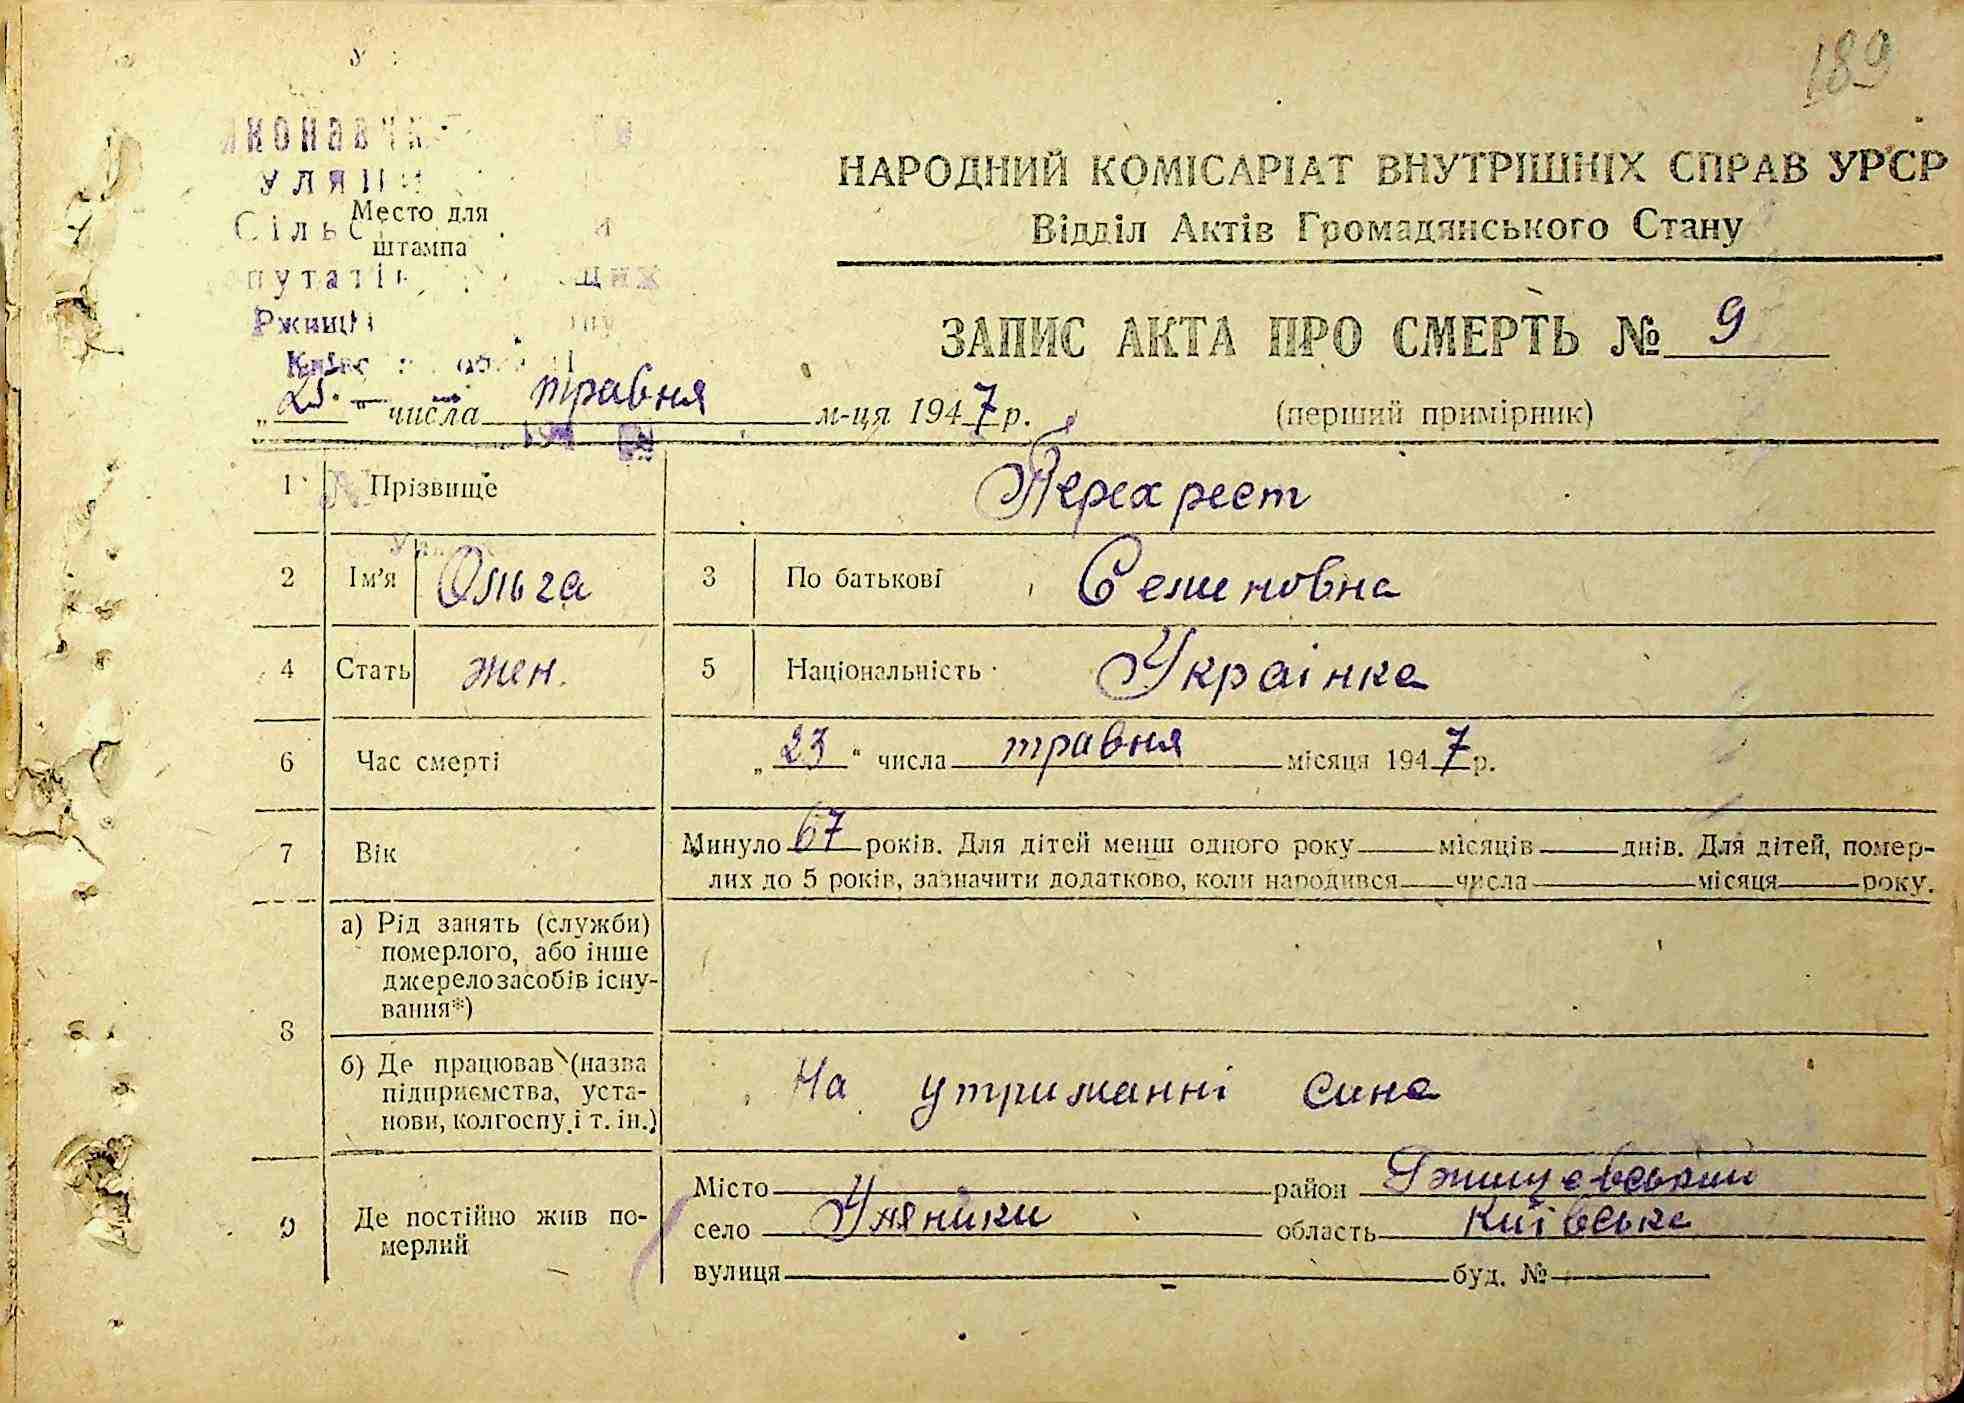 189
Место для
штампа
НАРОДНИЙ КОМІСАРІАТ ВНУТРІШНІХ СПРАВ УРСР
Відділ Актів Громадянського Стану
ЗАПИС АКТА ПРО СМЕРТЬ № 9
„25“ числа травня м-ця 1947 р. (перший примірник)
1 Прізвище Перехрест
2 Ім'я Ольга 3 По батькові Семеновна
4 Стать жен. 5 Національність Українка
6 Час смерті „23“ числа травня місяця 1947 р.
7 Вік Минуло 67 років. Для дітей менш одного року місяців днів. Для дітей, помер-
лих до 5 років, зазначити додатково, коли народився числа місяця року.
8 а) Рід занять (служби)
померлого, або інше
джерело засобів існу-
вання*)
б) Де працював (назва
підприємства, уста-
нови, колгоспу і т. ін.)
На утриманні сина
9 Де постійно жив по-
мерлий
Місто район Ржищевський
село Уляники область Київська
вулиця буд. №